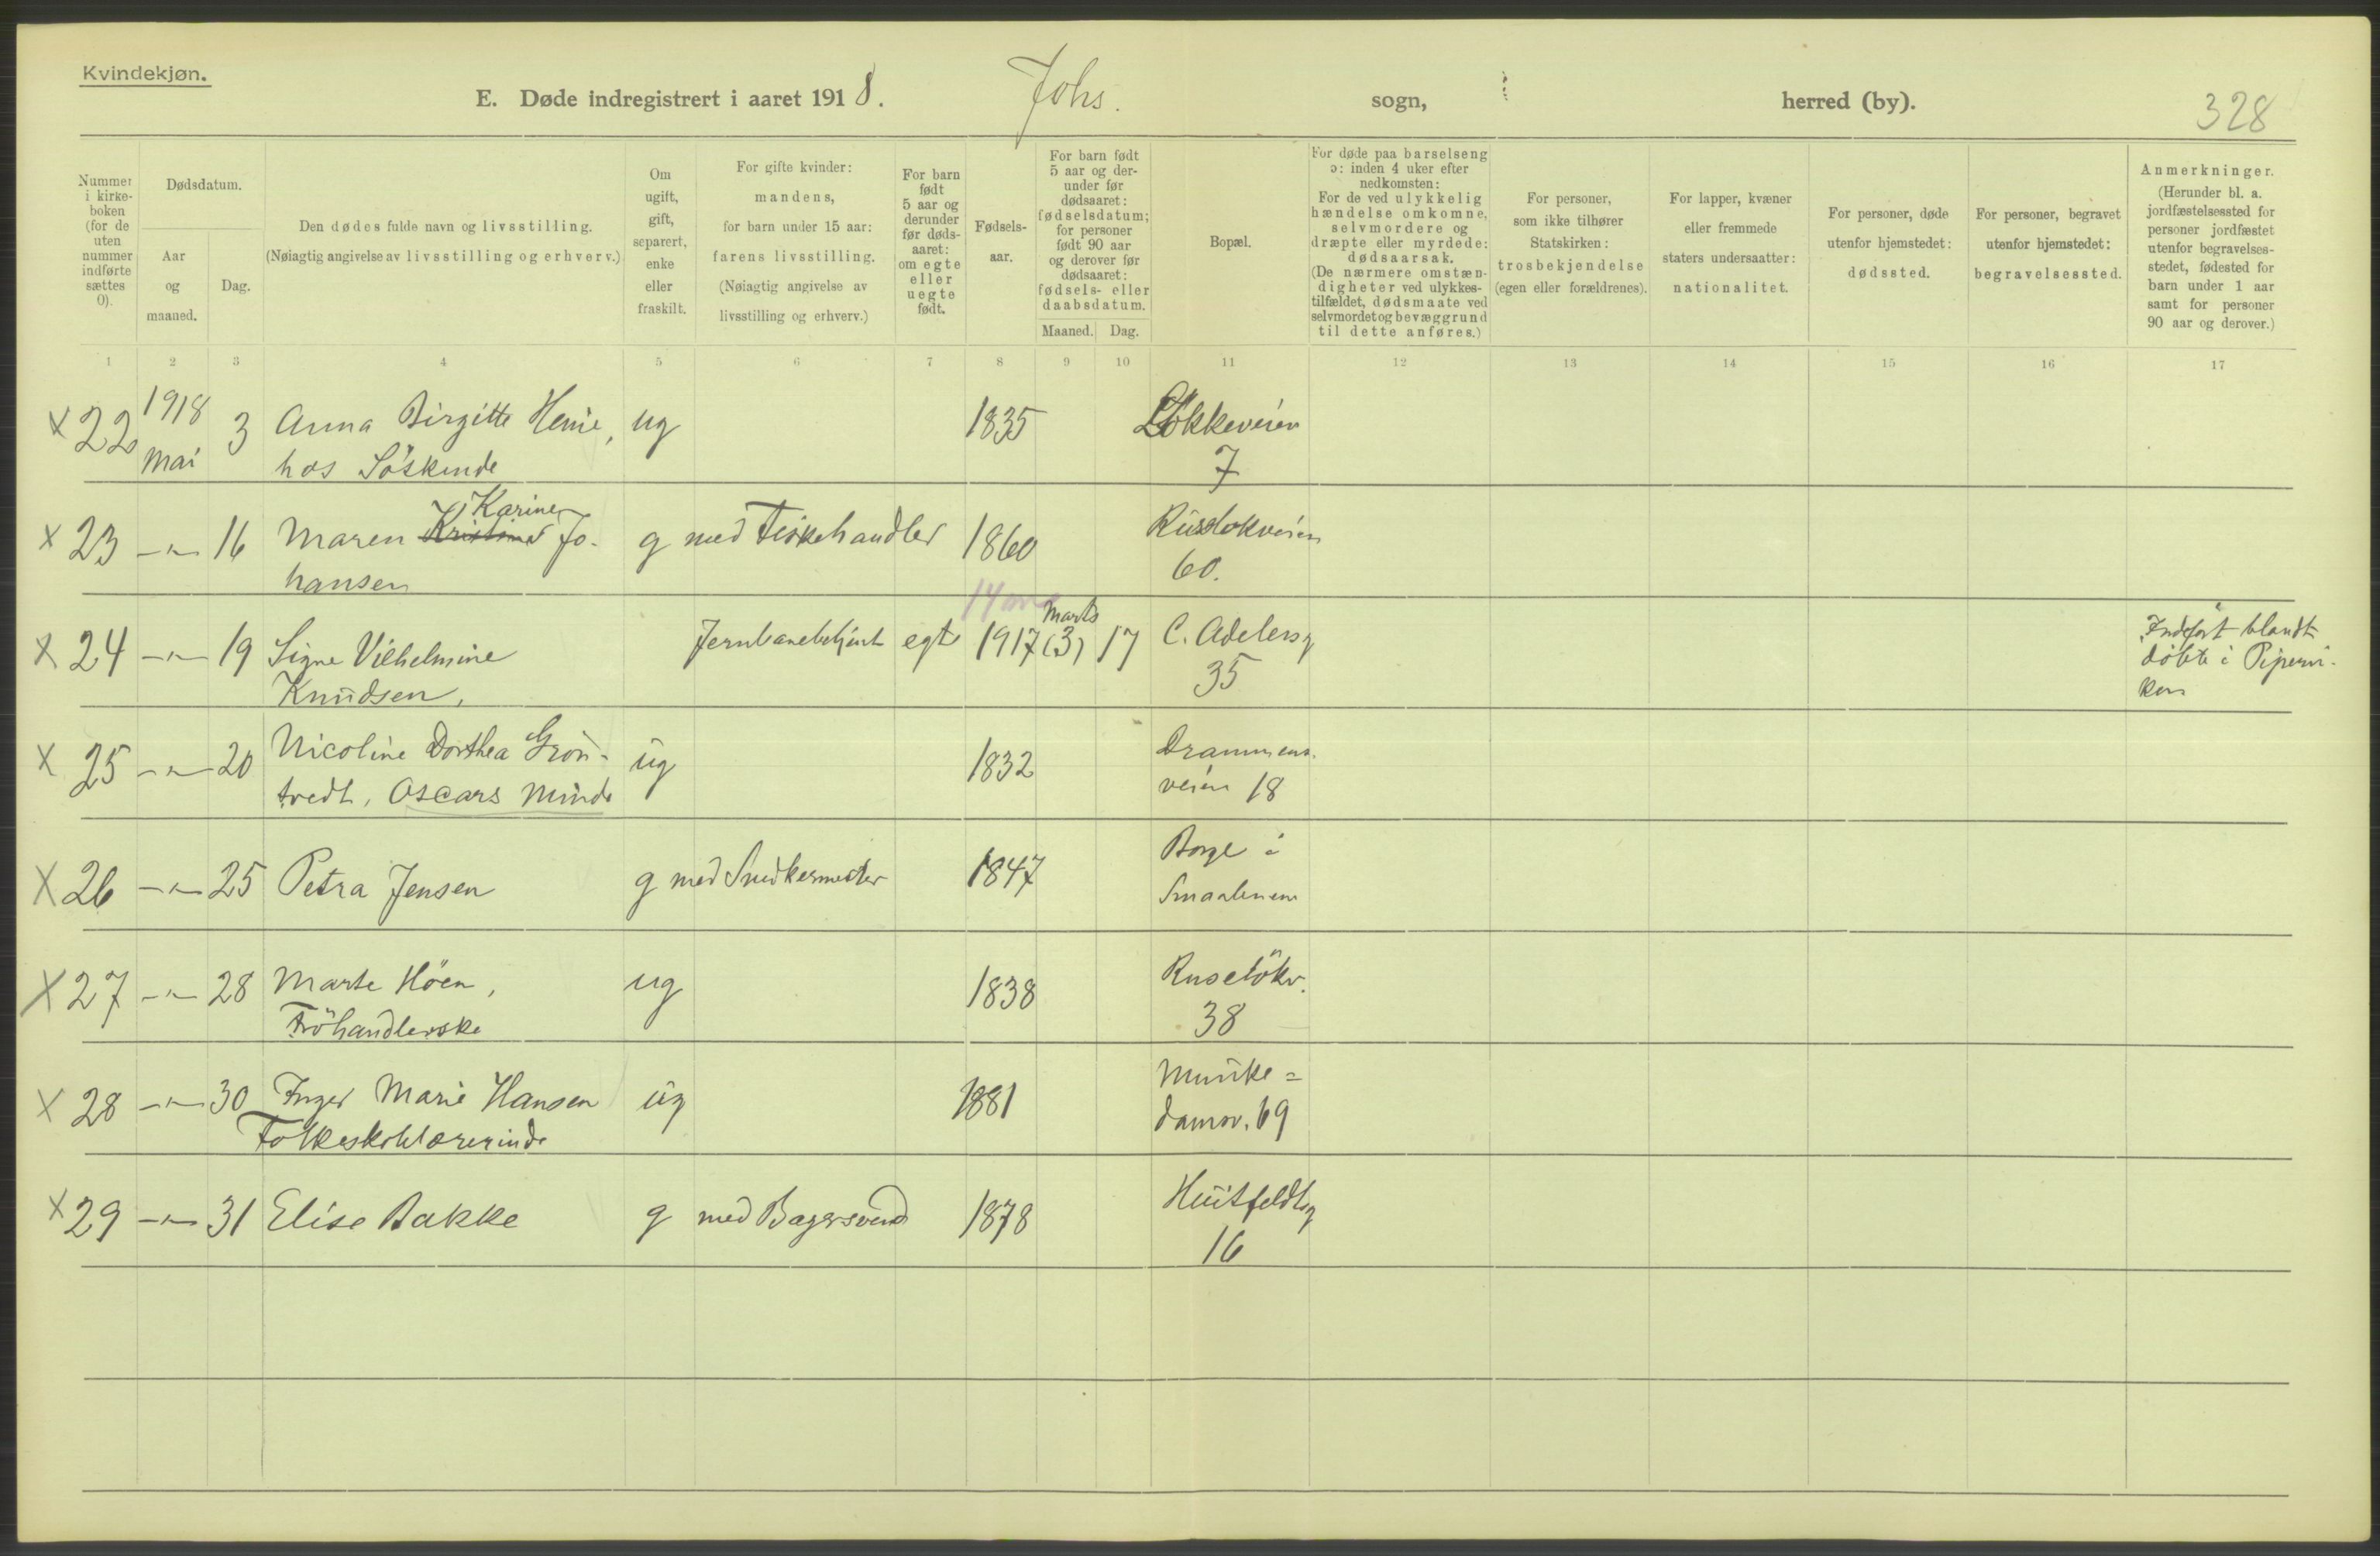 Kvindekjøn.
E. Døde indregistrert i aaret 1918. Johs. sogn, herred (by). 328
Nummer i kirke-boken (for de uten nummer indførte sættes 0).
Dødsdatum.
Aar og maaned.
Dag.
Den dødes fulde navn og livsstilling.
(Nøiagtig angivelse av livsstilling og erhverv.)
Om ugift, gift, separert, enke eller fraskilt.
For gifte kvinder: mandens, for barn under 15 aar: farens livsstilling. (Nøiagtig angivelse av livsstilling og erhverv.)
For barn født 5 aar og derunder før døds-aaret: om egte eller uegte født.
Fødsels-aar.
For barn født 5 aar og der-under før dødsaaret: fødselsdatum; for personer født 90 aar og derover før dødsaaret: fødsels- eller daabsdatum.
Maaned. Dag.
Bopæl.
For døde paa barselseng ɔ: inden 4 uker efter nedkomsten: For de ved ulykkelig hændelse omkomne, selvmordere og dræpte eller myrdede: dødsaarsak. (De nærmere omstæn-digheter ved ulykkes-tilfældet, dødsmaate ved selvmordet og bevæggrund til dette anføres.)
For personer, som ikke tilhører Statskirken: trosbekjendelse (egen eller forældrenes).
For lapper, kvæner eller fremmede staters undersaatter: nationalitet.
For personer, døde utenfor hjemstedet: dødssted.
For personer, begravet utenfor hjemstedet: begravelsessted.
Anmerkninger. (Herunder bl. a. jordfæstelsessted for personer jordfæstet utenfor begravelses-stedet, fødested for barn under 1 aar samt for personer 90 aar og derover.)
1 2 3 4 5 6 7 8 9 10 11 12 13 14 15 16 17
x 22 1918 Mai 3 Anna Birgitte Henie, ug 1835 Løkkeveien
hos Söskende 7
x 23 -"- 16 Maren Kristine Karine Jo- g med Fiskehandler 1860 Russløkveien
hansen 60.
x 24 -"- 19 Signe Vilhelmine Jernbanebetjent egte 1917 Marts (3) 17 C. Adelersg
Knudsen, 35
Indført blandt
döbte i Pipervi-
ken
x 25 -"- 20 Nicoline Dorthea Grön- ug 1832 Drammens-
tvedt, Oscars Minde veien 18
x 26 -"- 25 Petra Jensen g med Snedkermester 1847 Borge i
Smaalenene
x 27 -"- 28 Marte Höen, ug 1838 Ruselökv.
Fröhandlerske 38
x 28 -"- 30 Inger Marie Hansen ug 1881 Munke=
Folkeskolelærerinde damsv. 69
x 29 -"- 31 Elise Bakke g med Bagersvend 1878 Huitfeldtsg
16